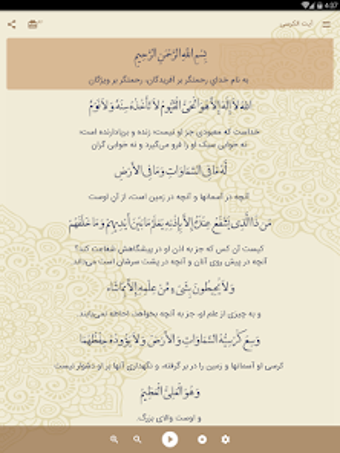 4:07
آیت الکرسی
بِسْمِ اللَّهِ الرَّحْمَنِ الرَّحِيمِ
به نام خدای رحمتگر بر آفریدگان، رحمتگر بر ویژگان
اللَّهُ لَا إِلَهَ إِلَّا هُوَ الْحَيُّ الْقَيُّومُ لَا تَأْخُذُهُ سِنَةٌ وَلَا نَوْمٌ
خداست که معبودی جز او نیست؛ زنده و برپادارنده است؛
نه خوابی سبک او را فرو می‌گیرد و نه خوابی گران
لَهُ مَا فِي السَّمَاوَاتِ وَمَا فِي الْأَرْضِ
آنچه در آسمانها و آنچه در زمین است، از آن اوست
مَنْ ذَا الَّذِي يَشْفَعُ عِنْدَهُ إِلَّا بِإِذْنِهِ يَعْلَمُ مَا بَيْنَ أَيْدِيهِمْ وَمَا خَلْفَهُمْ
کیست آن کس که جز به اذن او در پیشگاهش شفاعت کند؟
آنچه در پیش روی آنان و آنچه در پشت سرشان است می‌داند
وَلَا يُحِيطُونَ بِشَيْءٍ مِنْ عِلْمِهِ إِلَّا بِمَا شَاءَ
و به چیزی از علم او، جز به آنچه بخواهد، احاطه نمی‌یابند
وَسِعَ كُرْسِيُّهُ السَّمَاوَاتِ وَالْأَرْضَ وَلَا يَؤُودُهُ حِفْظُهُمَا
کرسی او آسمانها و زمین را در بر گرفته، و نگهداری آنها بر او دشوار نیست
وَهُوَ الْعَلِيُّ الْعَظِيمُ
و اوست والای بزرگ.